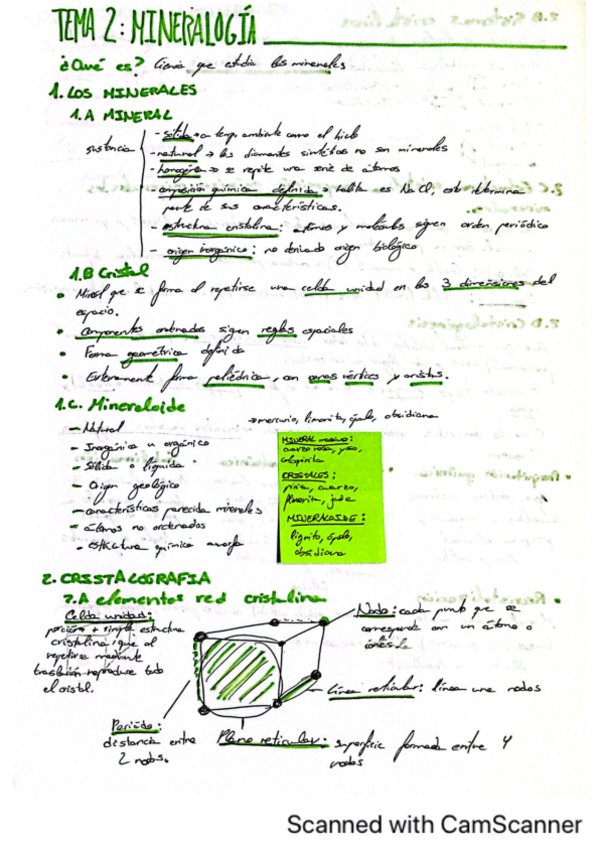 TEMA 2: MINERALOGÍA
¿Qué es? Ciencia que estudia los minerales
1. LOS MINERALES
1.A MINERAL
sustancia
- sólida → a temp. ambiente como el hielo
- natural → los diamantes sintéticos no son minerales
- homogénea → se repite una serie de átomos
- composición química definida → halita es NaCl, esto determina
parte de sus características.
- estructura cristalina: átomos y moléculas siguen orden periódico
- origen inorgánico: no derivado origen biológico
1.B Cristal
• Mineral que se forma al repetirse una celda unidad en las 3 dimensiones del
espacio.
• Componentes ordenados siguen reglas espaciales
• Forma geométrica definida
• Externamente forma poliédrica, con caras vértices y aristas.
1.C. Mineraloide
→ mercurio, limonita, ópalo, obsidiana
- Natural
- Inorgánico u orgánico
- Sólida o líquida
- Origen geológico
- características parecida minerales
- átomos no ordenados
- estructura química
MINERAL
cuarzo rosa, yeso,
calcopirita
CRISTALES:
pirita, cuarzo,
fluorita, jade
MINERALOIDE:
lignito, ópalo,
obsidiana
2. CRISTALOGRAFIA
2.A elementos red cristalina
Celda unidad:
porción + simple estructura
cristalina que al
repetirse mediante
traslación reproduce todo
el cristal.
Nodo: cada punto que se
corresponde con un átomo o
Línea reticular: línea une nodos
Periodo:
distancia entre
2 nodos.
Plano reticular: superficie formada entre 4
nodos
Scanned with CamScanner